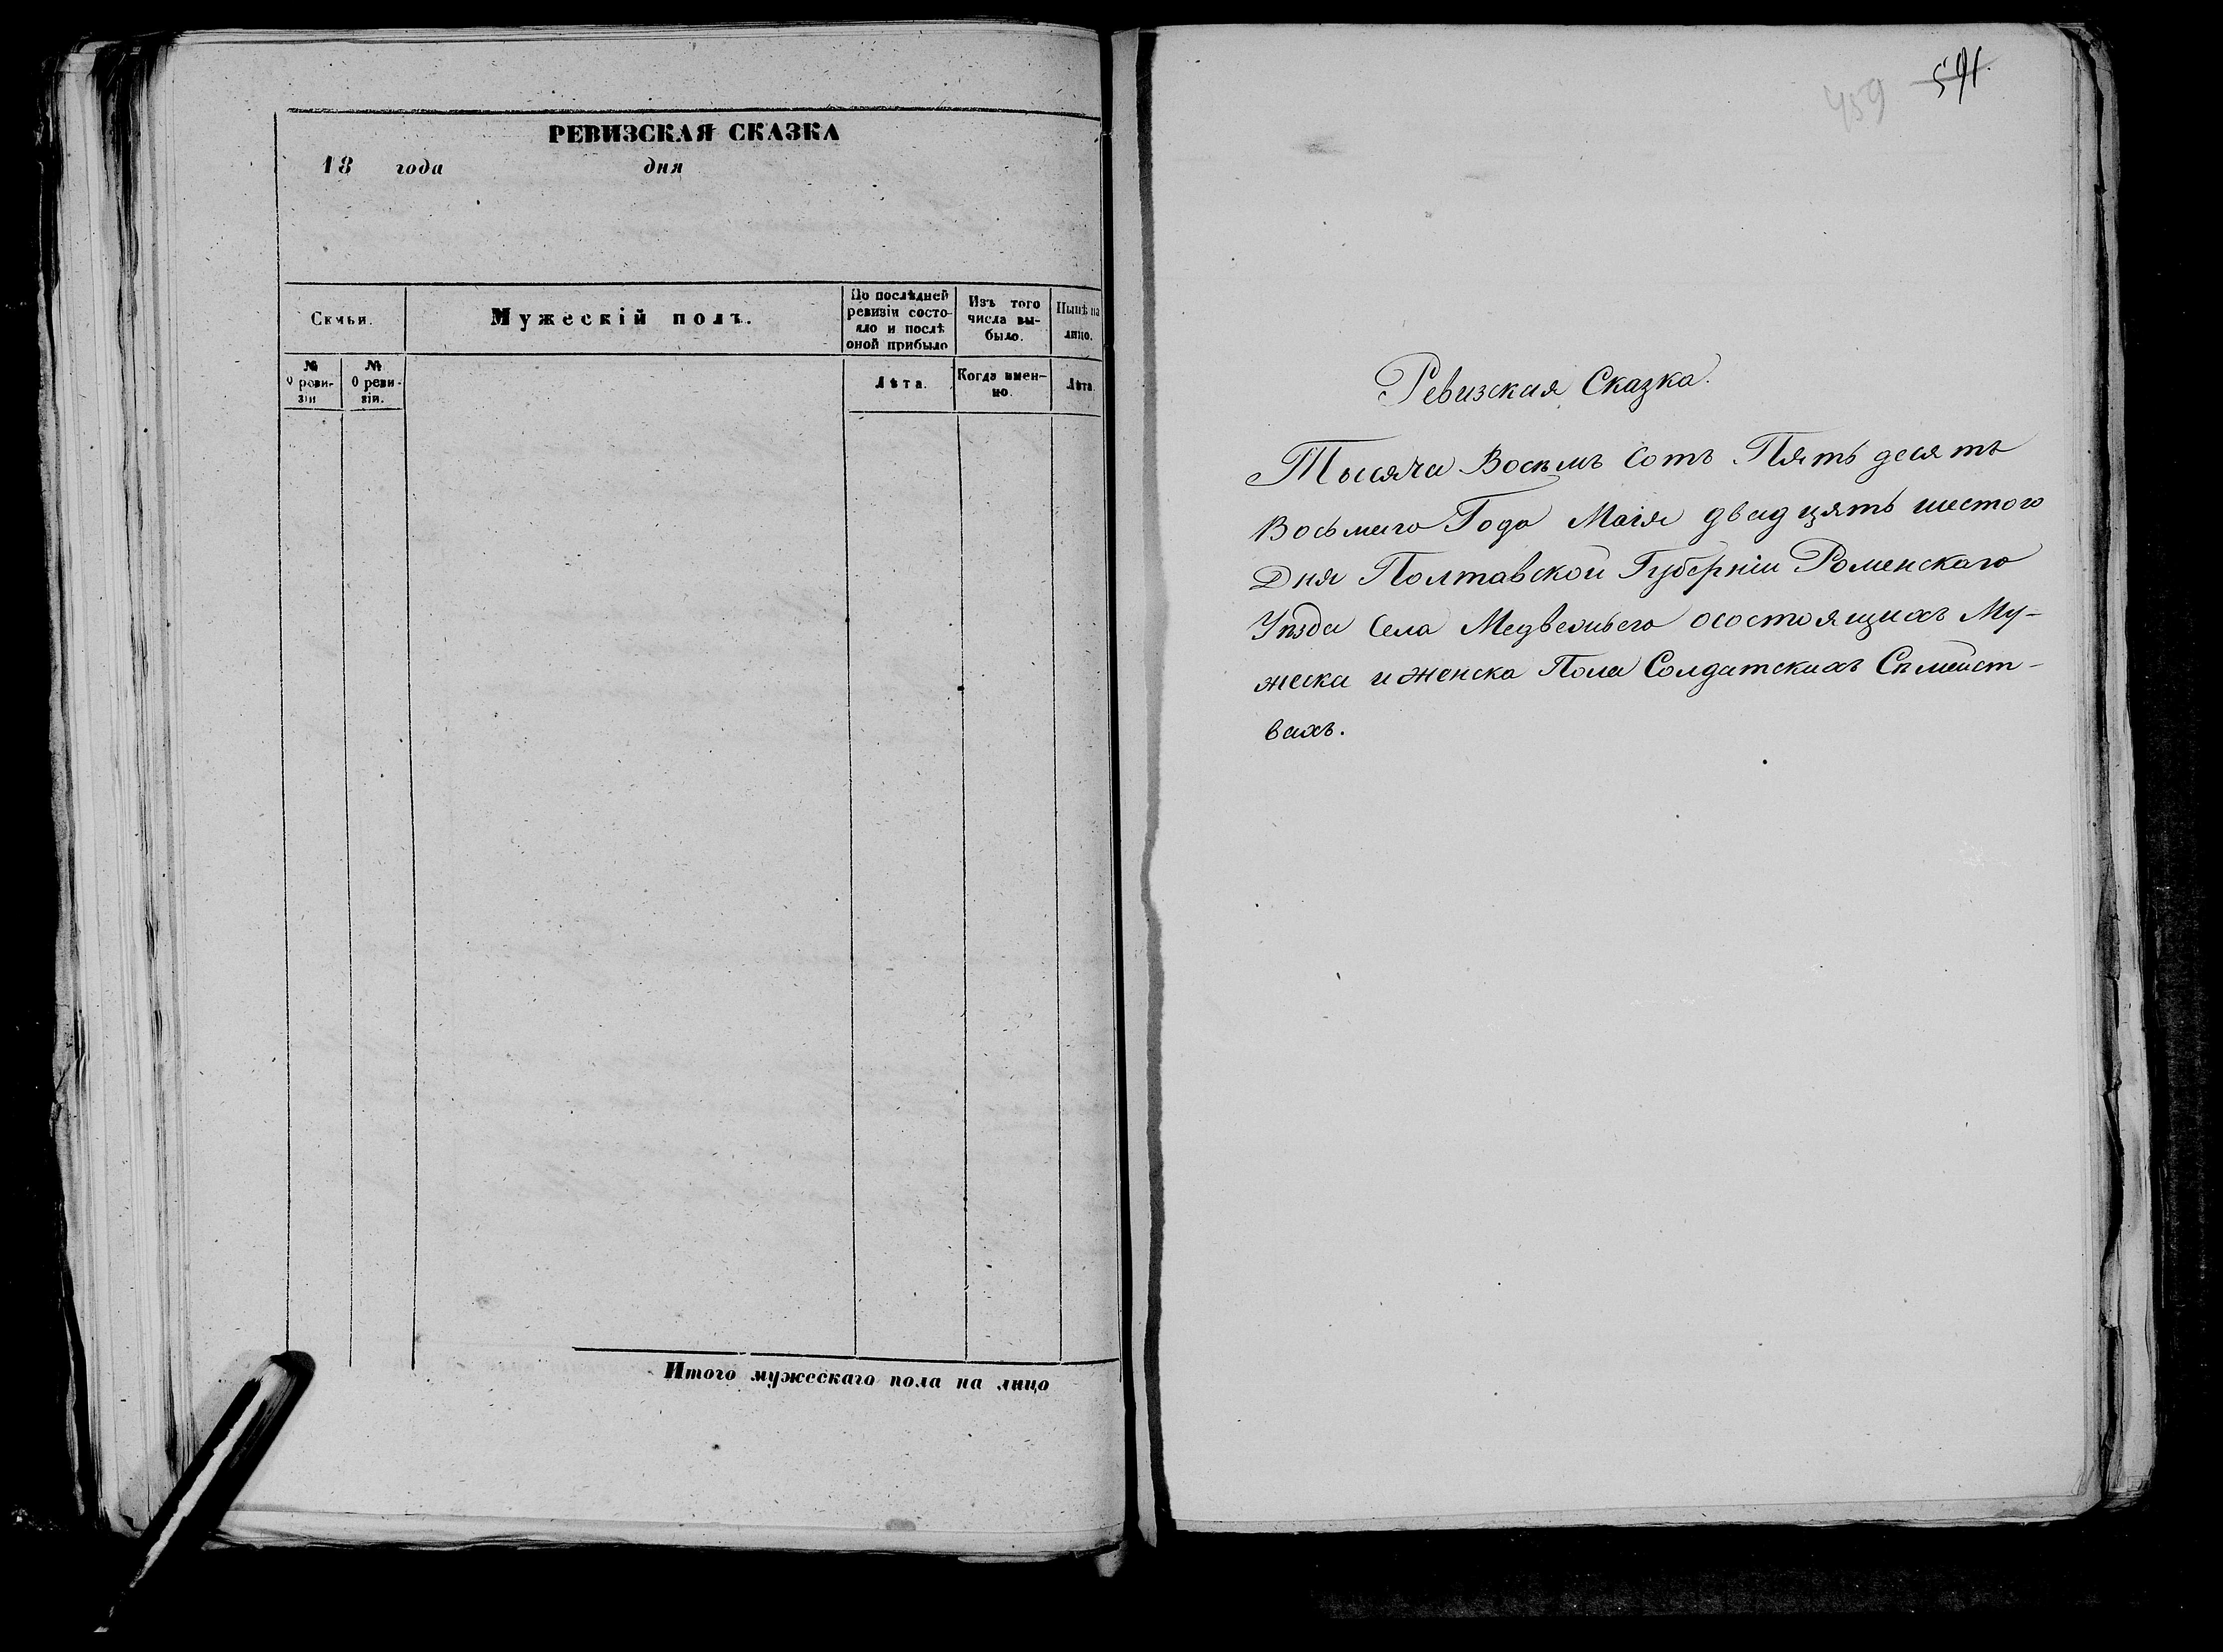 РЕВИЗСКАЯ СКАЗКА
18 года дня
Семьи.
Мужескій полъ.
По послѣдней
ревизіи состо-
яло и послѣ
оной прибыло
Изъ того
числа вы-
было.
Нынѣ на
лицо.
№
О реви-
зіи
№
О реви-
зіи.
Лѣта.
Когда имен-
но.
Лѣта.
Итого мужескаго пола на лицо
459 591.
Ревизская Сказка.
Тысяча Восѣмъ Сотъ Пять десятъ
Восьмаго Года Маія двадцять шестого
Дня Полтавской Губерніи Роменскаго
Уѣзда Села Медвежьего осостоящихъ Му-
жеска и женска Пола Солдатскихъ Сѣмейст-
вахъ.